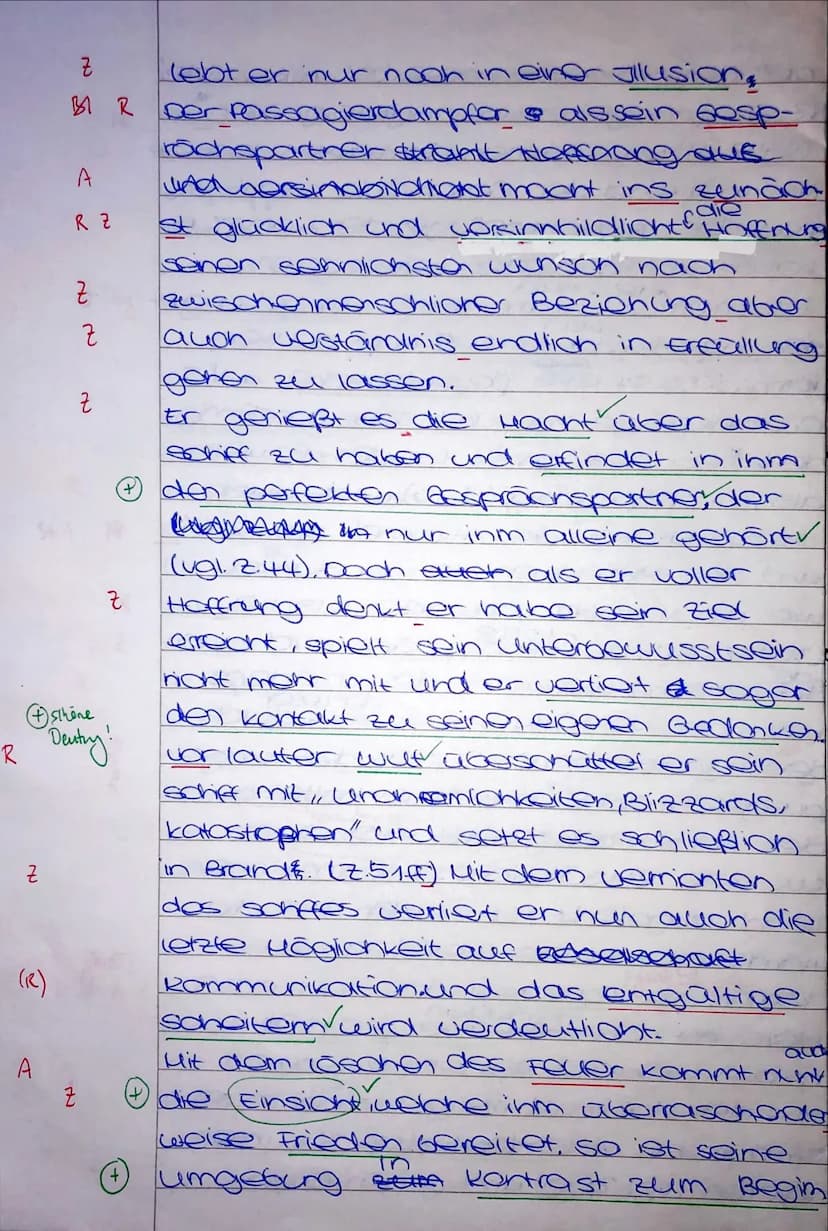 Z lebt er nur noch in einer Illusion.
Bl R Der Passagierdampfer als sein Gesp-
rächspartner strahlt Hoffnung aus
A und versinnbildlicht macht ins zunäch
R Z st glücklich und versinnbildlicht die Hoffnung
seinen sehnlichsten Wunsch nach
Z zwischenmenschlicher Beziehung aber
Z auch Verständnis endlich in Erfüllung
gehen zu lassen.
Z Er genießt es die Macht über das
Schiff zu haben und erfindet in ihm
+ den perfekten Gesprächspartner, der
nur ihm alleine gehört
(vgl. Z.44). Doch auch als er voller
Z Hoffnung denkt er habe sein Ziel
erreicht, spielt sein Unterbewusstsein
nicht mehr mit und er verliert sogar
+ schöne Deutung! den Kontakt zu seinen eigenen Gedanken.
R vor lauter Wut überschüttet er sein
Schiff mit „Unannehmlichkeiten, Blizzards,
Katastophen" und setzt es schließlich
Z in Brand. (Z.51ff) Mit dem vernichten
des Schiffes verliert er nun auch die
letzte Möglichkeit auf
(R) Kommunikation und das entgültige
scheitern wird verdeutlicht.
A Mit dem löschen des Feuer kommt auch
Z + die Einsicht, welche ihm überraschender
weise Frieden bereitet. So ist seine
+ Umgebung in Kontrast zum Beginn